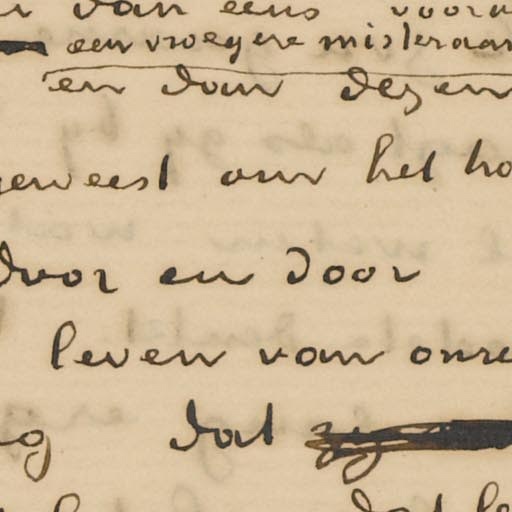 van eens voora
een vroegere misleraar
en dan dezen
geweest om het ho
door en door
leven van onze
dat zij
dat le